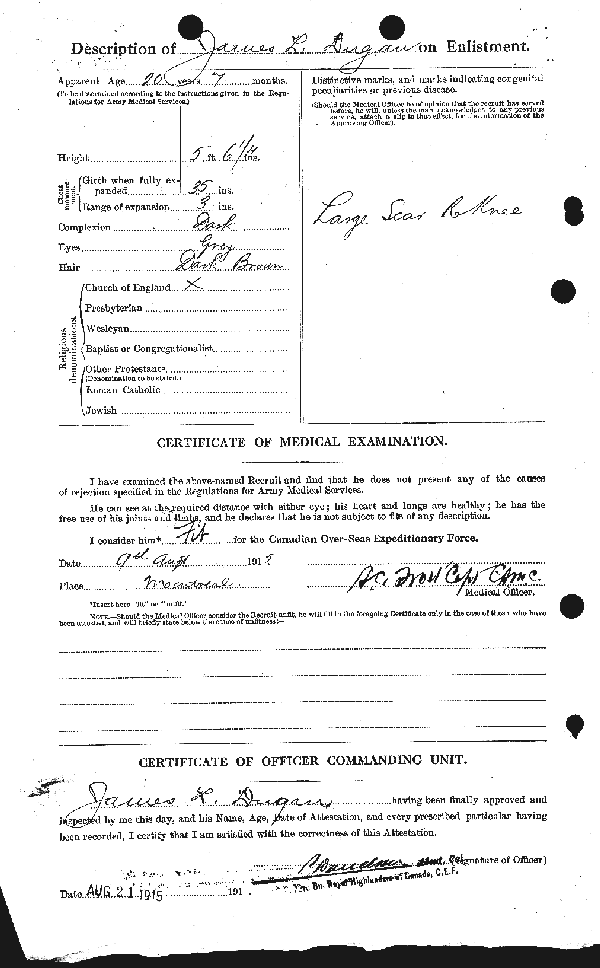 Description of James L. Dugan on Enlistment.
Apparent Age 20 years 7 months.
(To be determined according to the instructions given in the Regulations for Army Medical Services.)
Height 5 ft. 6 1/4 ins.
Chest measurement
Girth when fully expanded 35 ins.
Range of expansion 3 ins.
Complexion Dark
Eyes Grey
Hair Dark Brown
Religious denominations
Church of England X
Presbyterian
Wesleyan
Baptist or Congregationalist
Other Protestants
(Denomination to be stated.)
Roman Catholic
Jewish
Distinctive marks, and marks indicating congenital
peculiarities or previous disease.
(Should the Medical Officer be of opinion that the recruit has served
before, he will, unless the man acknowledges to any previous
service, attach a slip to that effect, for the information of the
Approving Officer).
Large Scar R Knee
CERTIFICATE OF MEDICAL EXAMINATION.
I have examined the above-named Recruit and find that he does not present any of the causes
of rejection specified in the Regulations for Army Medical Services.
He can see at the required distance with either eye; his heart and lungs are healthy; he has the
free use of his joints and limbs, and he declares that he is not subject to fits of any description.
I consider him* Fit for the Canadian Over-Seas Expeditionary Force.
Date Augt 191
Place Montreal
Capt CAMC
Medical Officer.
*Insert here "fit" or "unfit."
NOTE.—Should the Medical Officer consider the Recruit unfit, he will fill in the foregoing Certificate only in the case of those who have
been attested, and will briefly state below the cause of unfitness:—
CERTIFICATE OF OFFICER COMMANDING UNIT.
James L. Dugan having been finally approved and
inspected by me this day, and his Name, Age, Date of Attestation, and every prescribed particular having
been recorded, I certify that I am satisfied with the correctness of this Attestation.
(Signature of Officer)
Bn. Royal Highlanders of Canada, C.E.F.
Date AUG 21 1915 191